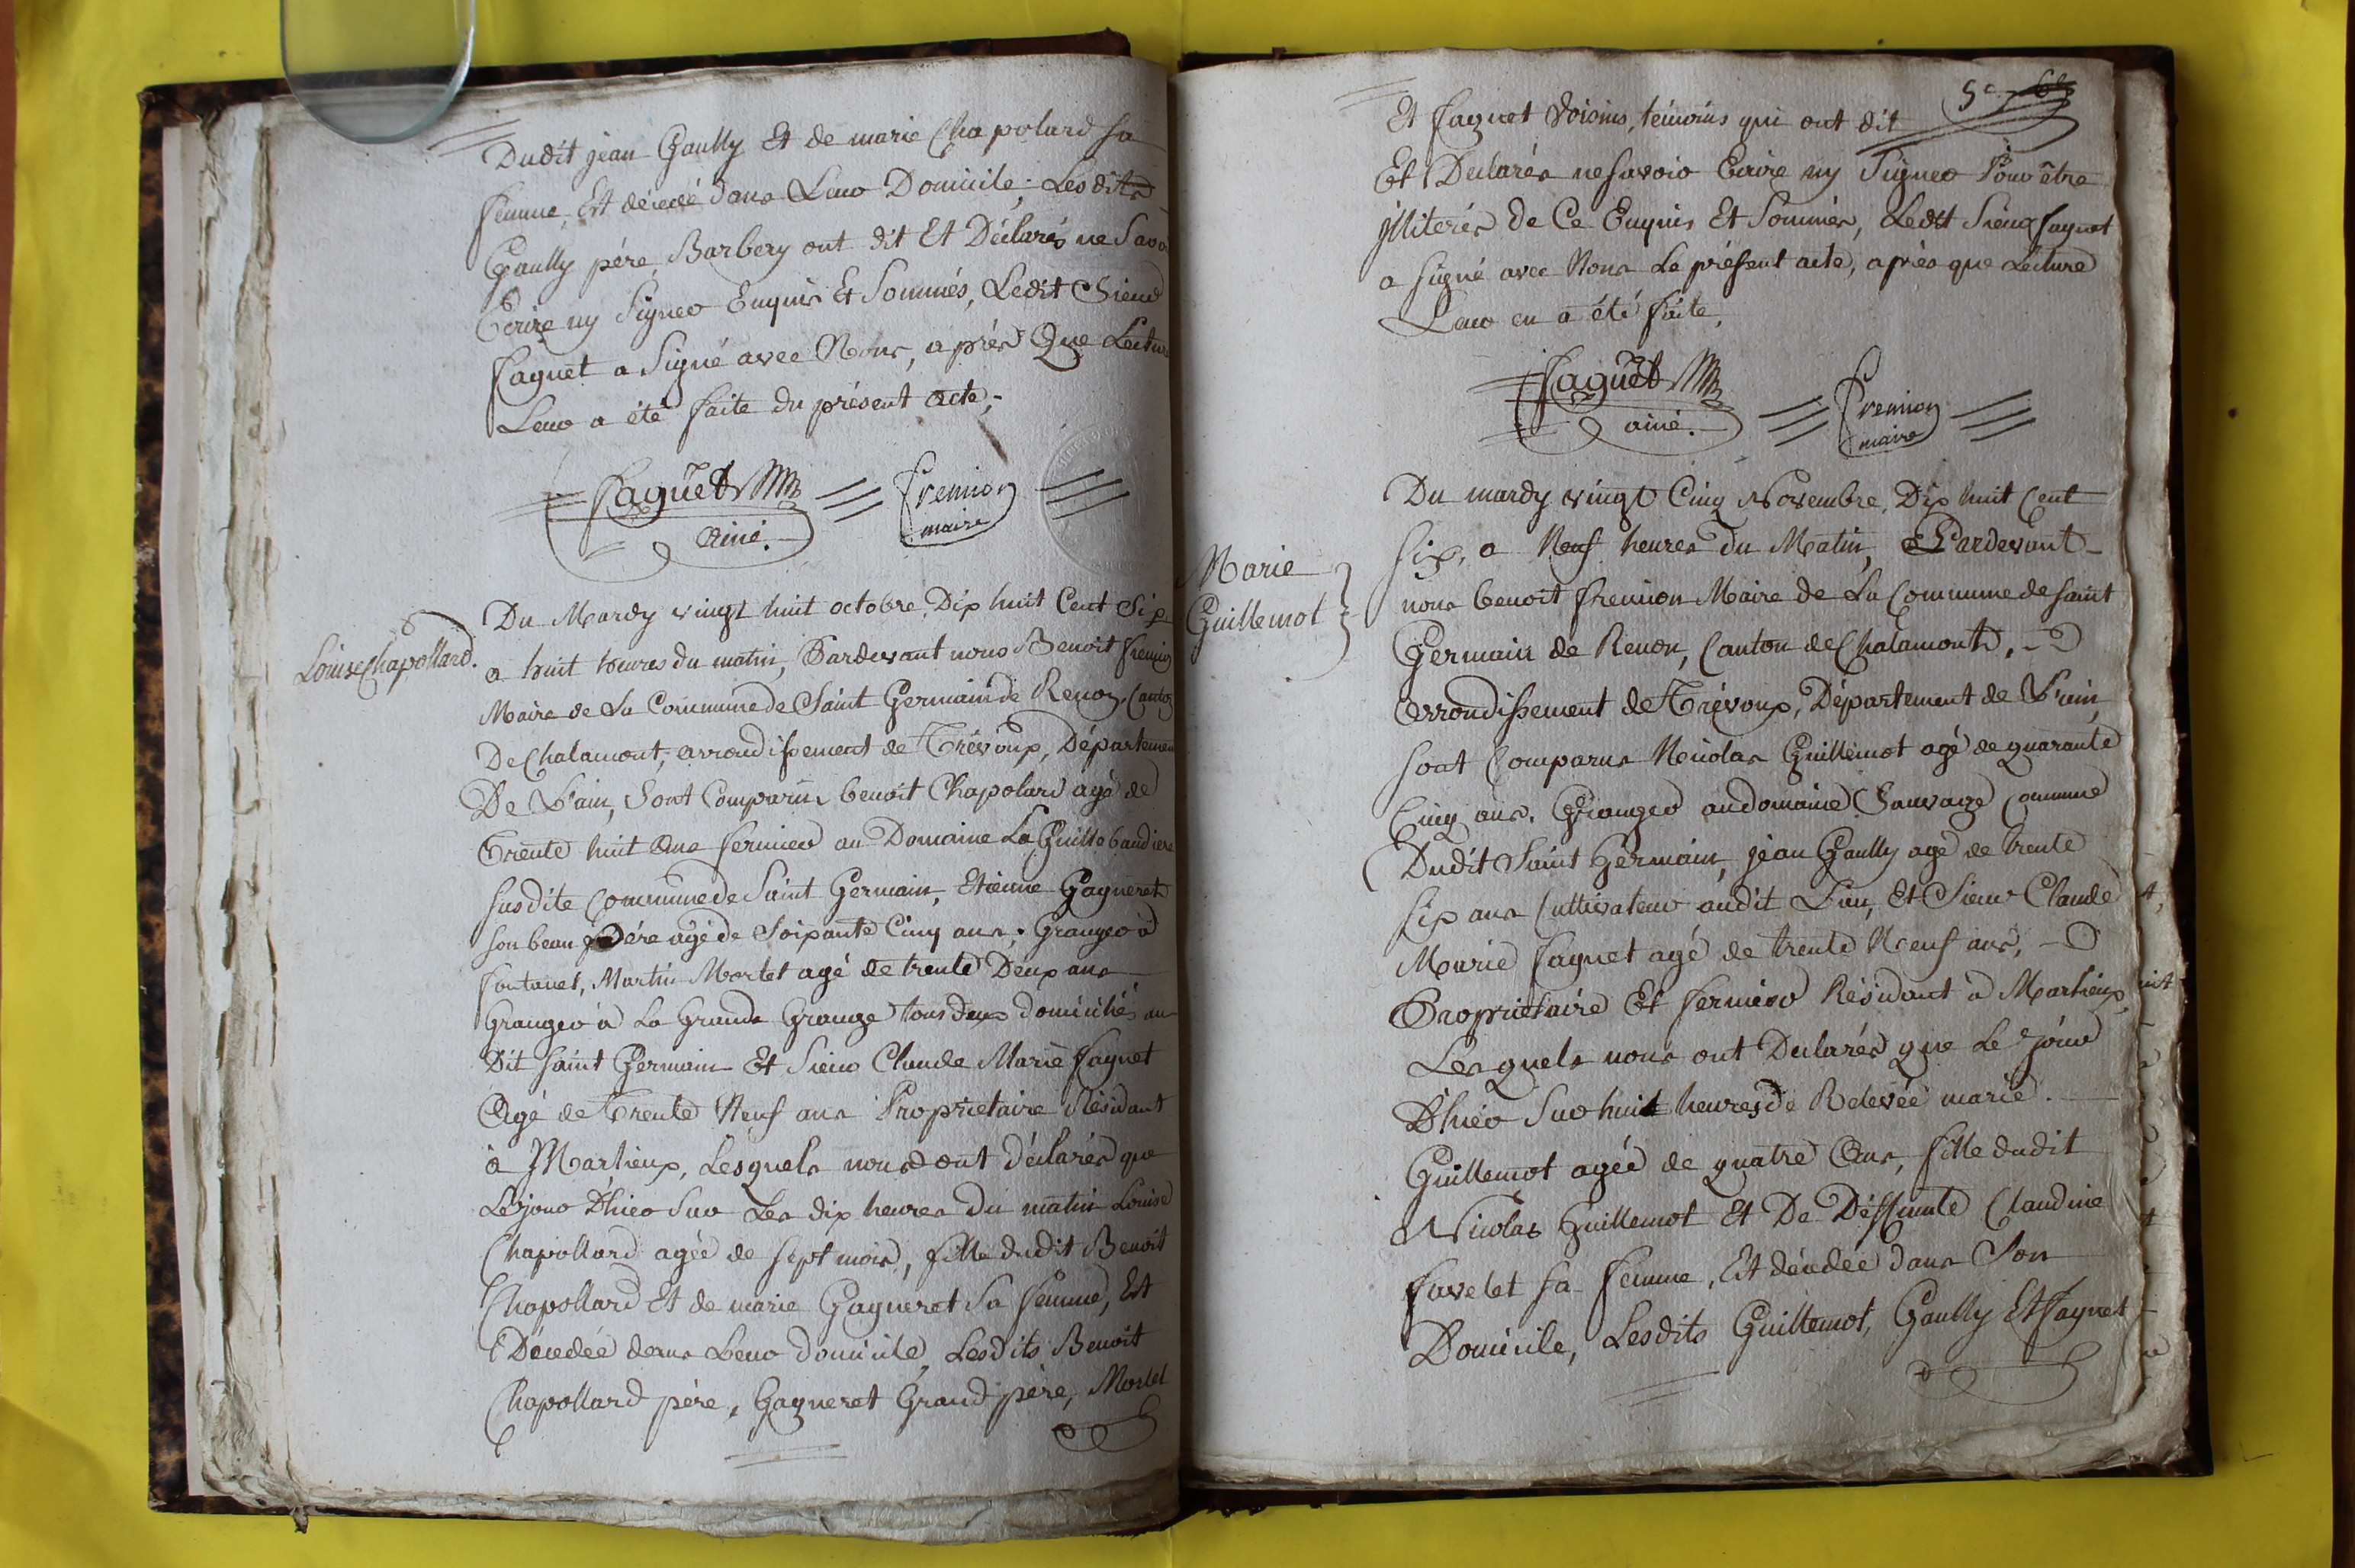 Dudit jean Gaully Et de marie Chapolard sa
femme, Est décédé dans Leur Domicile; Lesdits
Gaully pére, Barbery ont dit Et Déclarés ne Savo
Ecrire ny Signer Enquis Et Sommés, Ledit Sieur
Faguet a Signé avec Nous, après Que Lectur
Leur a été faite du présent acte,-
Faguet
ainé.
Fremion
maire
Louise Chapollard.
Du Mardy vingt huit octobre Dix huit Cent Six
a huit heures du matin, Pardevant nous Benoit fremion
Maire de La Commune de Saint Germain de Renon, Canton
De Chalamont, arrondissement de Trévoux, Département
De L'ain, Sont Comparus benoit Chapolard agé de
Trente huit Ans fermier au Domaine La Guillebaudiere
susdite Commune de Saint Germain, Etienne Gagneret
son beau pére agé de Soixante Cinq ans, Granger à
fontanet, Martin Mortel agé de trente Deux ans
Granger à La Grande Grange tous deux domiciliés au
Dit Saint Germain Et Sieur Claude Marie Faguet
Agé de Trente Neuf ans Propriétaire Résidant
à Marlieux, Lesquels nous ont déclarés que
Le jour D'hier Sur Les dix heures du matin Louise
Chapollard agée de sept mois, fille dudit Benoit
Chapollard Et de marie Gagneret Sa femme, Est
Décedée dans Leur domicile, Lesdits Benoit
Chapollard pére, Gagneret Grand pére, Mortel
5e
Et Faguet Voisins, témoins qui ont dit
Et Déclarés ne Savoir Ecrire ny Signer Pour être
illiterés de Ce Enquis Et Sommés, Ledit Sieur Faguet
a signé avec Nous Le présent acte, après que Lecture
Leur en a été faite,
Faguet
ainé.
Fremion
maire
Marie
Guillemot
Du mardy vingt Cinq Novembre, Dix huit Cent
six, a Neuf heures du Matin, Pardevant
nous benoit fremion Maire de La Commune de Saint
Germain de Renon, Canton de Chalamont,
arrondissement de Trévoux, Département de L'ain,
sont Comparus Nicolas Guillemot agé de quarante
Cinq ans, Granger au domaine Sauvage Commune
Dudit Saint Germain, jean Gaully agé de trente
six ans Cultivateur audit Lieu, Et Sieur Claude
Marie Faguet agé de trente Neuf ans,
Propriétaire Et fermier Résidant à Marlieux,
Lesquels nous ont Déclarés que Le jour
D'hier Sur huit heures de Relevée marie
Guillemot agée de quatre Ans, fille dudit
Nicolas Guillemot Et De Déffunte Claudine
Favelet sa femme, Est décédée dans Son
Domicile, Lesdits Guillemot, Gaully Et Faguet